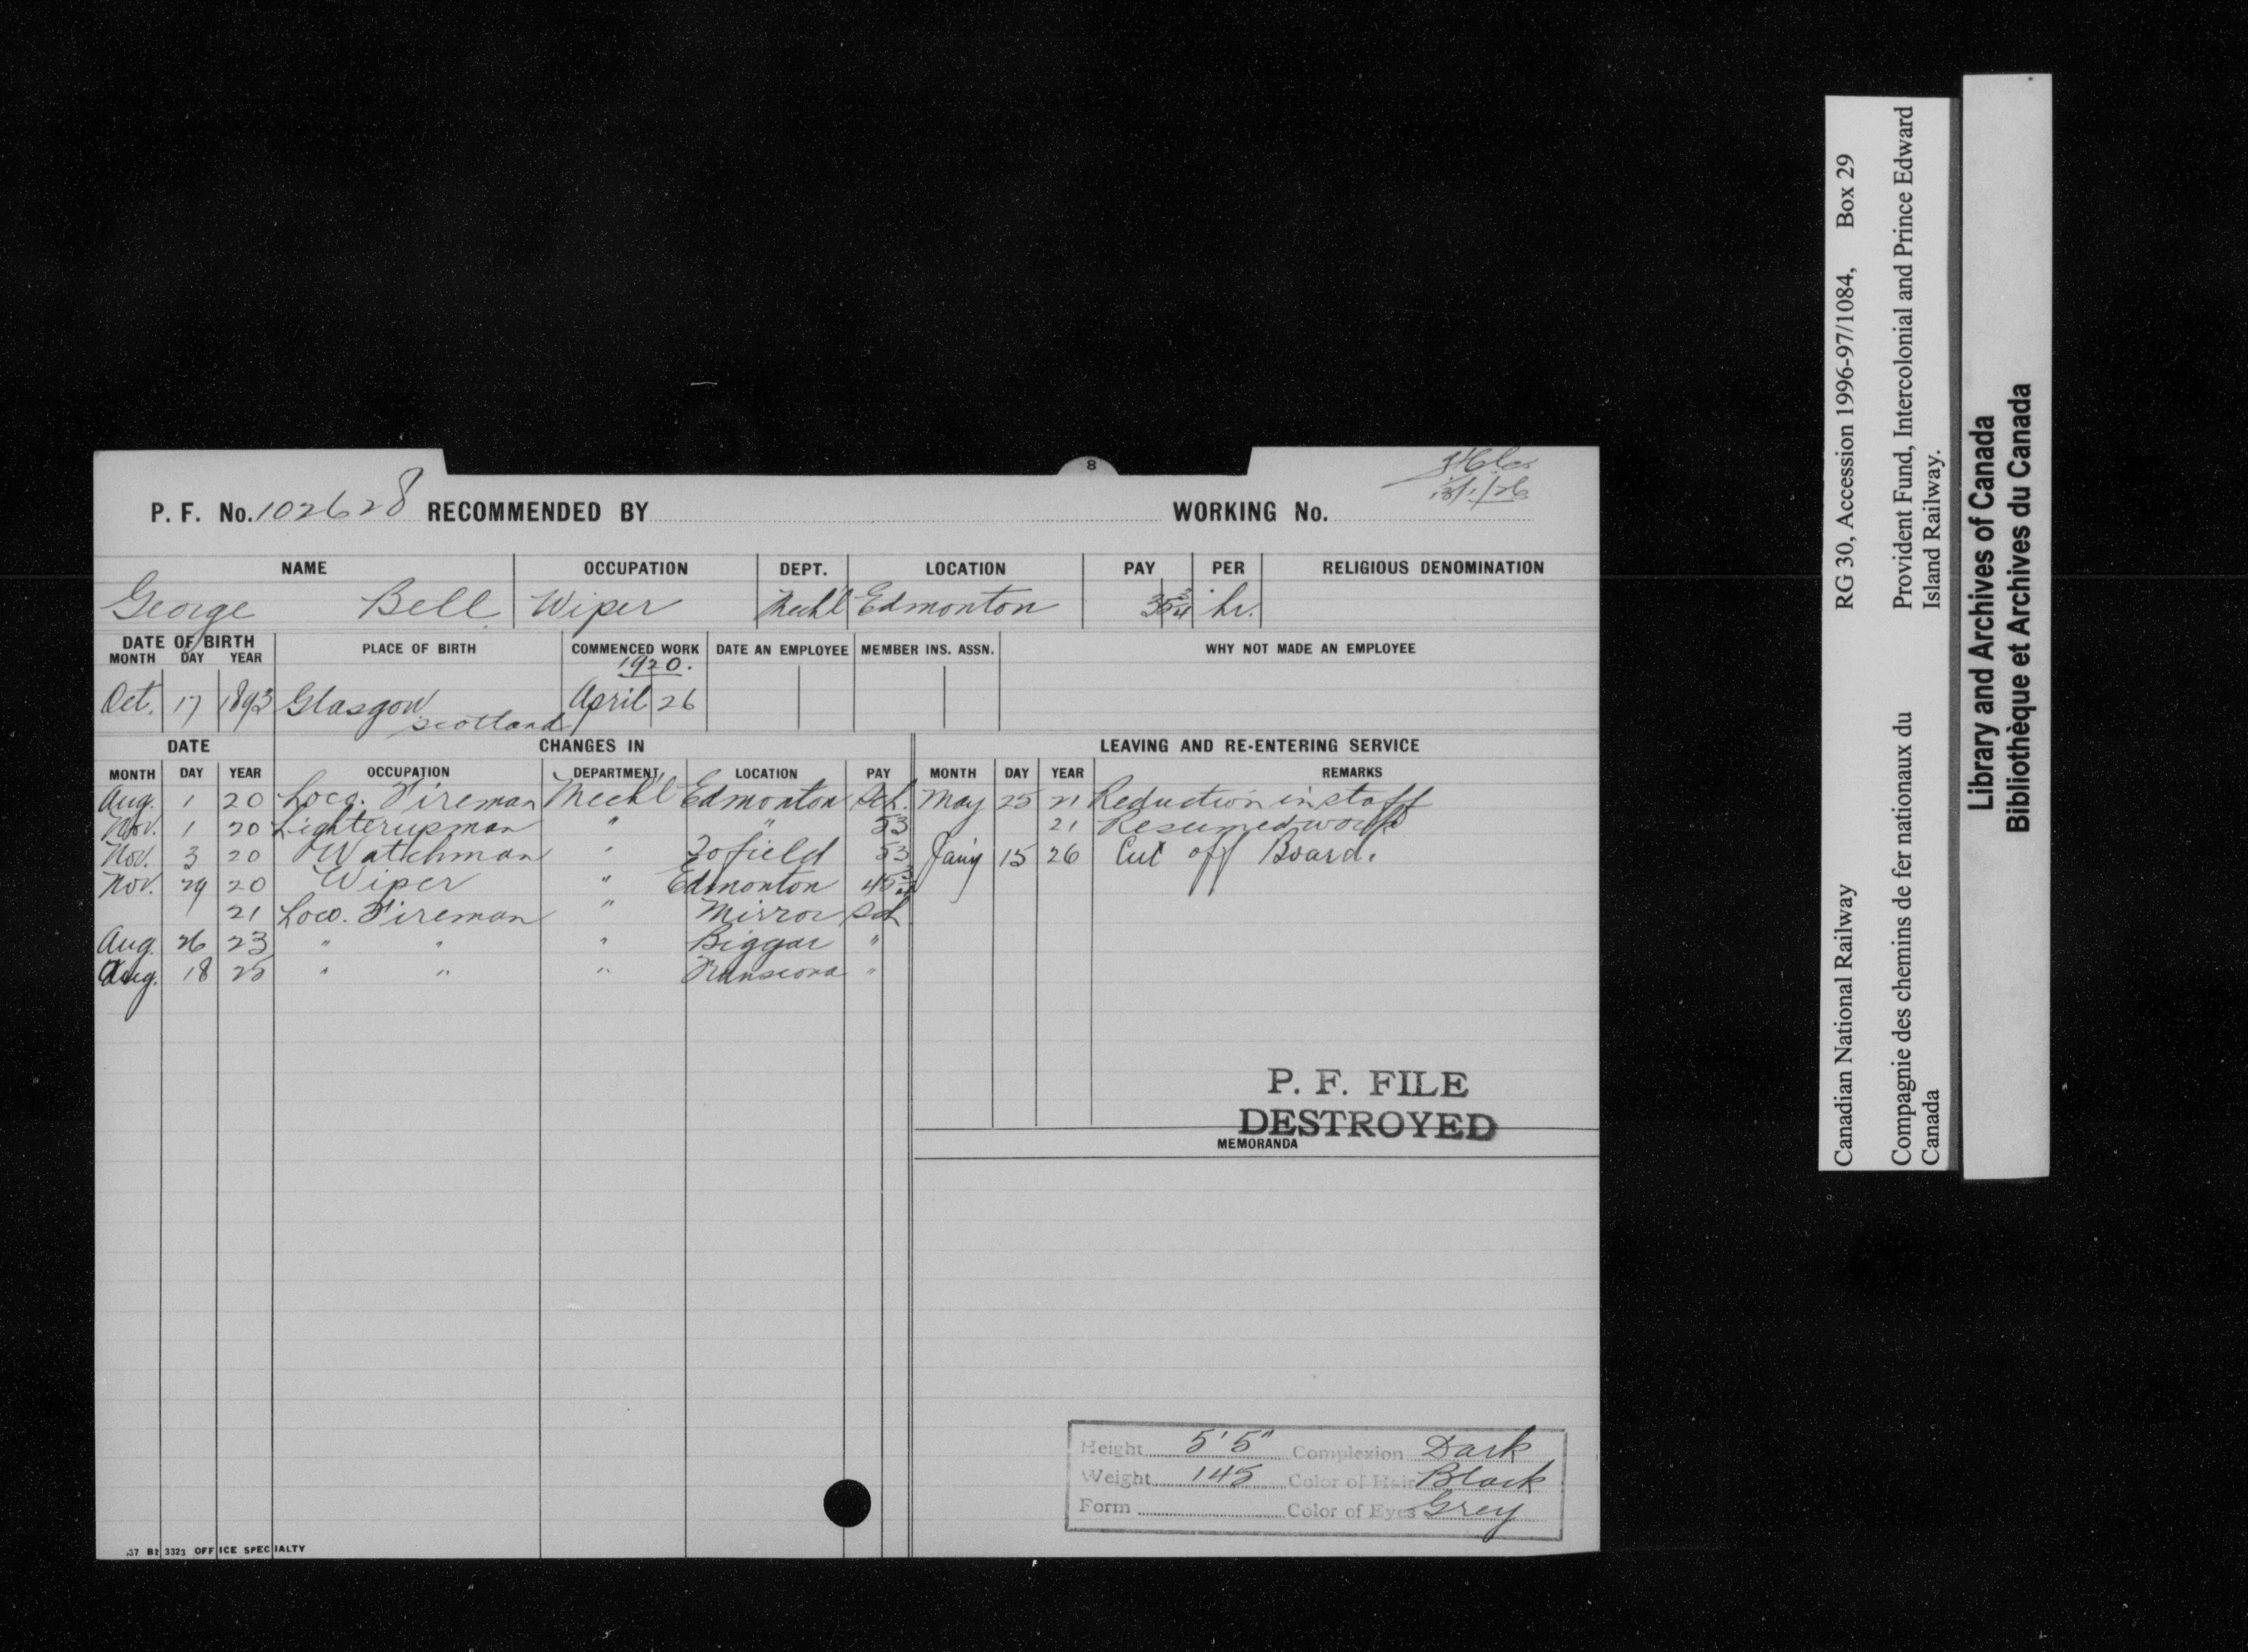 8
P. F. No. 102628 RECOMMENDED BY WORKING No.
NAME OCCUPATION DEPT. LOCATION PAY PER RELIGIOUS DENOMINATION
George Bell Wiper Mechl Edmonton 35 3/4 hr.
DATE OF BIRTH PLACE OF BIRTH COMMENCED WORK DATE AN EMPLOYEE MEMBER INS. ASSN. WHY NOT MADE AN EMPLOYEE
MONTH DAY YEAR
1920.
Oct. 17 1893 Glasgow Scotland April 26
DATE CHANGES IN LEAVING AND RE-ENTERING SERVICE
MONTH DAY YEAR OCCUPATION DEPARTMENT LOCATION PAY MONTH DAY YEAR REMARKS
Aug. 1 20 Loco. Fireman Mechl Edmonton Sch. May 25 21 Reduction in staff
Nov. 1 20 Lighterupman " " 53 21 Resumed work
Nov. 3 20 Watchman " Tofield 53 Jan'y 15 26 Cut off Board.
Nov. 29 20 Wiper " Edmonton 45 3/4
21 Loco. Fireman " Mirror Sch
Aug. 26 23 " " " Biggar "
Aug. 18 25 " " " Transcona "
P. F. FILE
DESTROYED
MEMORANDA
Height 5'5" Complexion Dark
Weight 145 Color of Hair Black
Form Color of Eyes Grey
37 B2 3323 OFFICE SPECIALTY
Canadian National Railway RG 30, Accession 1996-97/1084, Box 29
Compagnie des chemins de fer nationaux du Provident Fund, Intercolonial and Prince Edward
Canada Island Railway.
Library and Archives of Canada
Bibliothèque et Archives du Canada